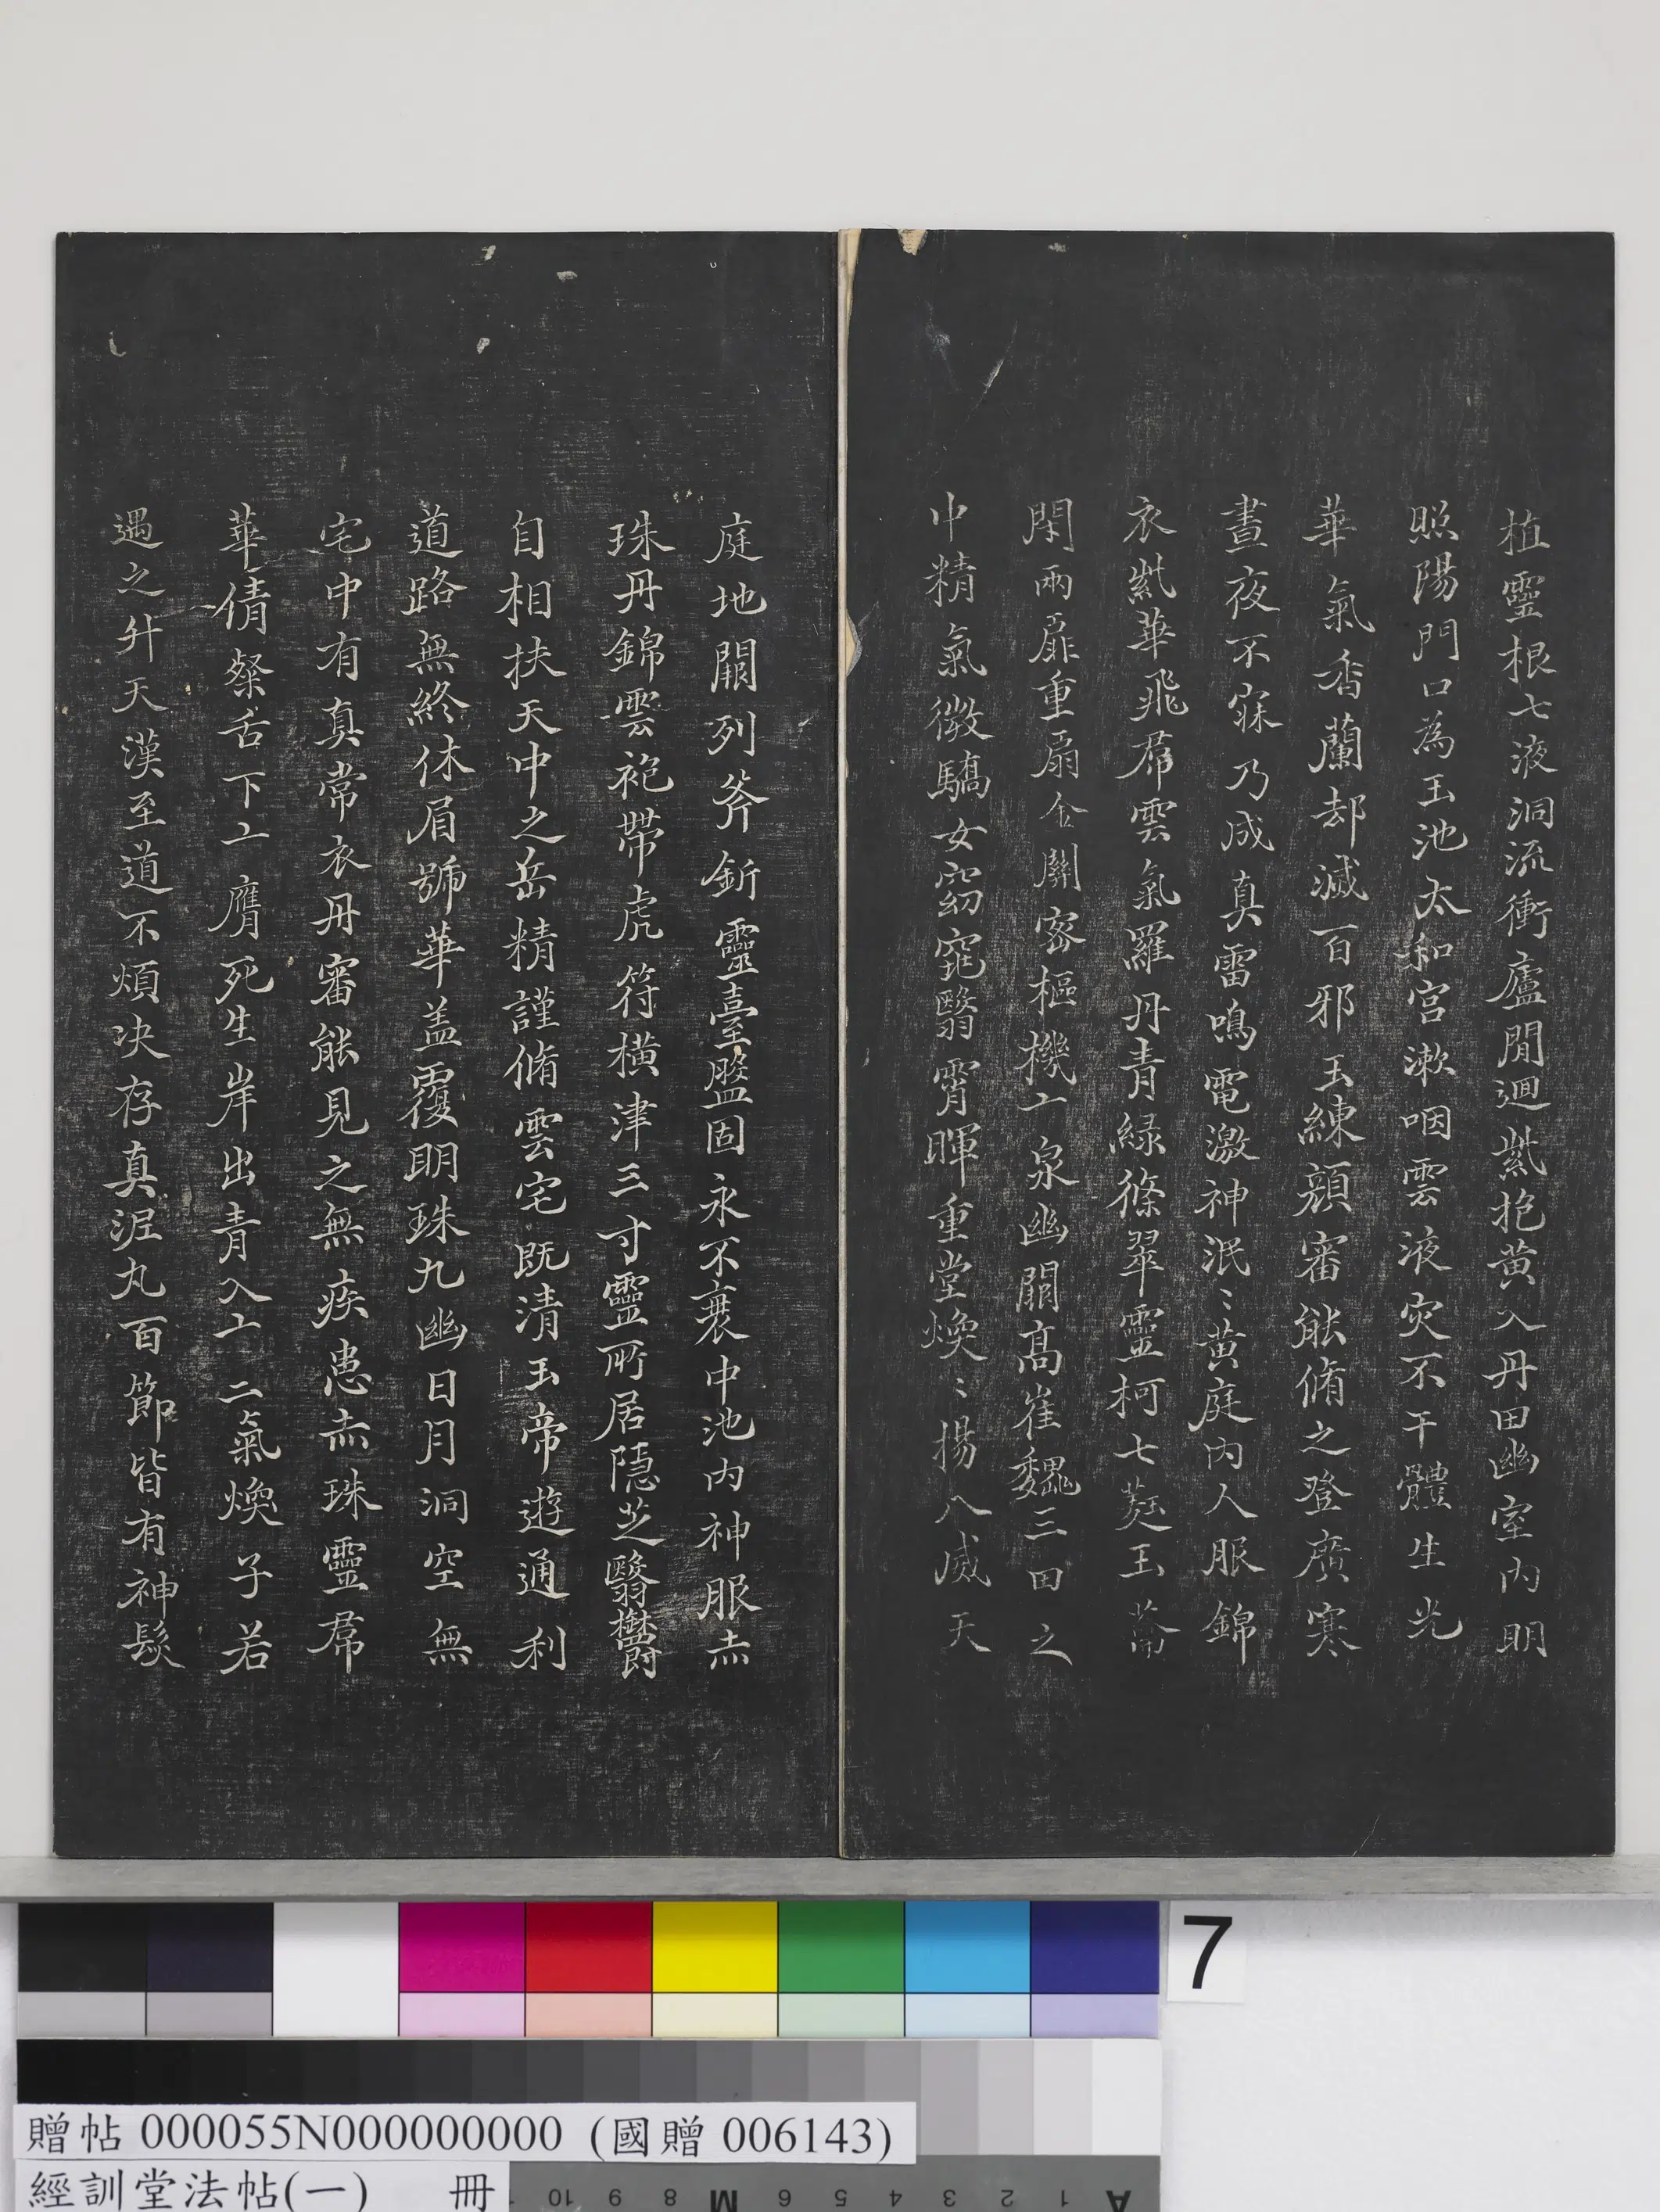 植靈根七液洞流衝廬閒迴紫抱黄入丹田幽室内明
照陽門口為玉池太和宫漱咽雲液灾不干體生光
華氣香蘭却滅百邪玉練顔審能脩之登廣寒
晝夜不寐乃成真雷鳴電激神泯〻黄庭内人服錦
衣紫華飛帬雲氣羅丹青緑條翠靈柯七蕤玉蘥
閇兩扉重扇金關密樞機亠泉幽關髙崔巍三田之
中精氣微驕女窈窕翳霄暉重堂煥〻揚八威天
庭地關列斧斨靈臺盤固永不衰中池内神服赤
珠丹錦雲袍帶虎符横津三寸靈所居隱芝翳欝
自相扶天中之岳精謹脩雲宅既清玉帝遊通利
道路無終休眉號華蓋覆明珠九幽日月洞空無
宅中有真常衣丹審能見之無疾患赤珠靈帬
華倩粲舌下亠膺死生岸出青入亠二氣煥子若
遇之升天漢至道不煩决存真泥丸百節皆有神髮
7
贈帖 000055N000000000 (國贈 006143)
經訓堂法帖(一) 冊
A 1 2 3 4 5 6 M 8 9 10